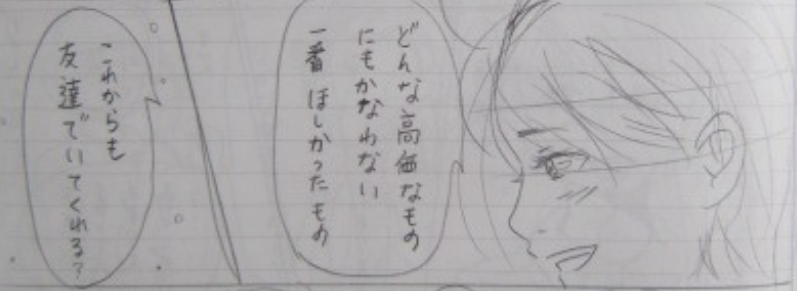 どんな高価なもの
にもかなわない
一番ほしかったもの
これからも
友達でいてくれる?